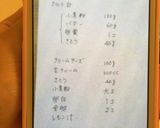 タルト台
小麦粉 120g
バター 60g
卵黄 1コ
さとう 40g
クリームチーズ 180g
生クリーム 200cc
さとう 40g
小麦粉 大2
卵白 1コ
全卵 2コ
レモン汁